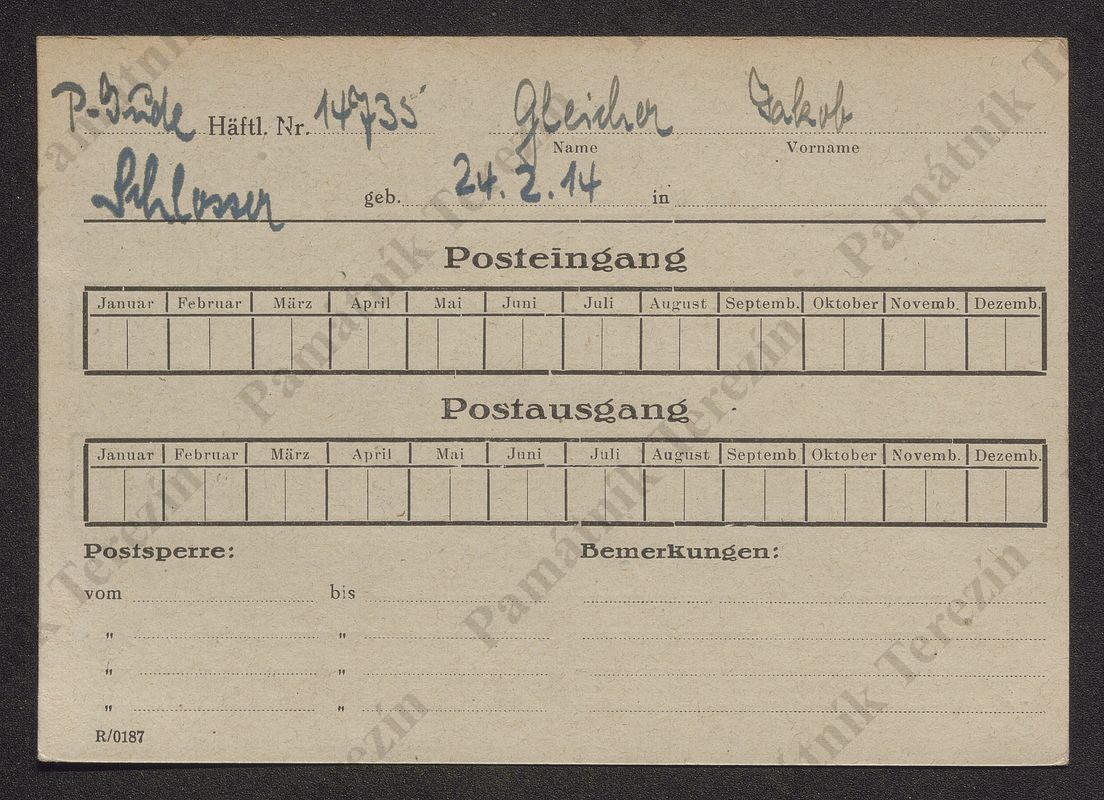 P-Jude Häftl. Nr. 14735 Gleicher Jakob
Name Vorname
Schlosser geb. 24.2.14 in
Posteingang
Januar Februar März April Mai Juni Juli August Septemb. Oktober Novemb. Dezemb.
Postausgang
Januar Februar März April Mai Juni Juli August Septemb Oktober Novemb. Dezemb.
Postsperre: Bemerkungen:
vom bis
" "
" "
" "
R/0187
Památník Terezín
Památník Terezín
Památník Terezín
Památník Terezín